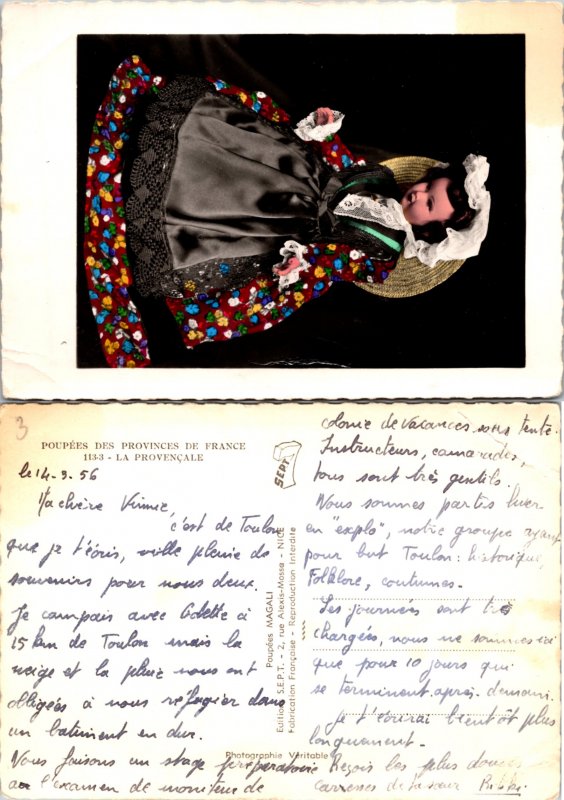 3
POUPÉES DES PROVINCES DE FRANCE
113-3 - LA PROVENÇALE
le 14-3.56
Ma chère
c'est de Toulon
que je t'écris, ville pleine de
souvenirs pour nous deux.
Je campais avec Odette à
15 km de Toulon mais la
neige et la pluie nous ont
obligées à nous réfugier dans
un batiment en dur.
Nous faisons un stage préparatoire
a l'examen de moniteur de
SEPT
Poupées MAGALI
Editions S.E.P.T. - 2, rue Alexis-Mossa - NICE
Fabrication Française - Reproduction Interdite
Photographie Véritable
colonie de vacances sous tente.
Instructeurs, camarades,
tous sont très gentils.
Nous sommes partis hier
en "explo", notre groupe ayant
pour but Toulon: historique,
Folklore, coutumes.
Les journées sont très
chargées, nous ne sommes ici
que pour 10 jours qui
se terminent après-demain.
je t'écrirai bientôt plus
longuement.
Reçois les plus douces
caresses de ta sœur